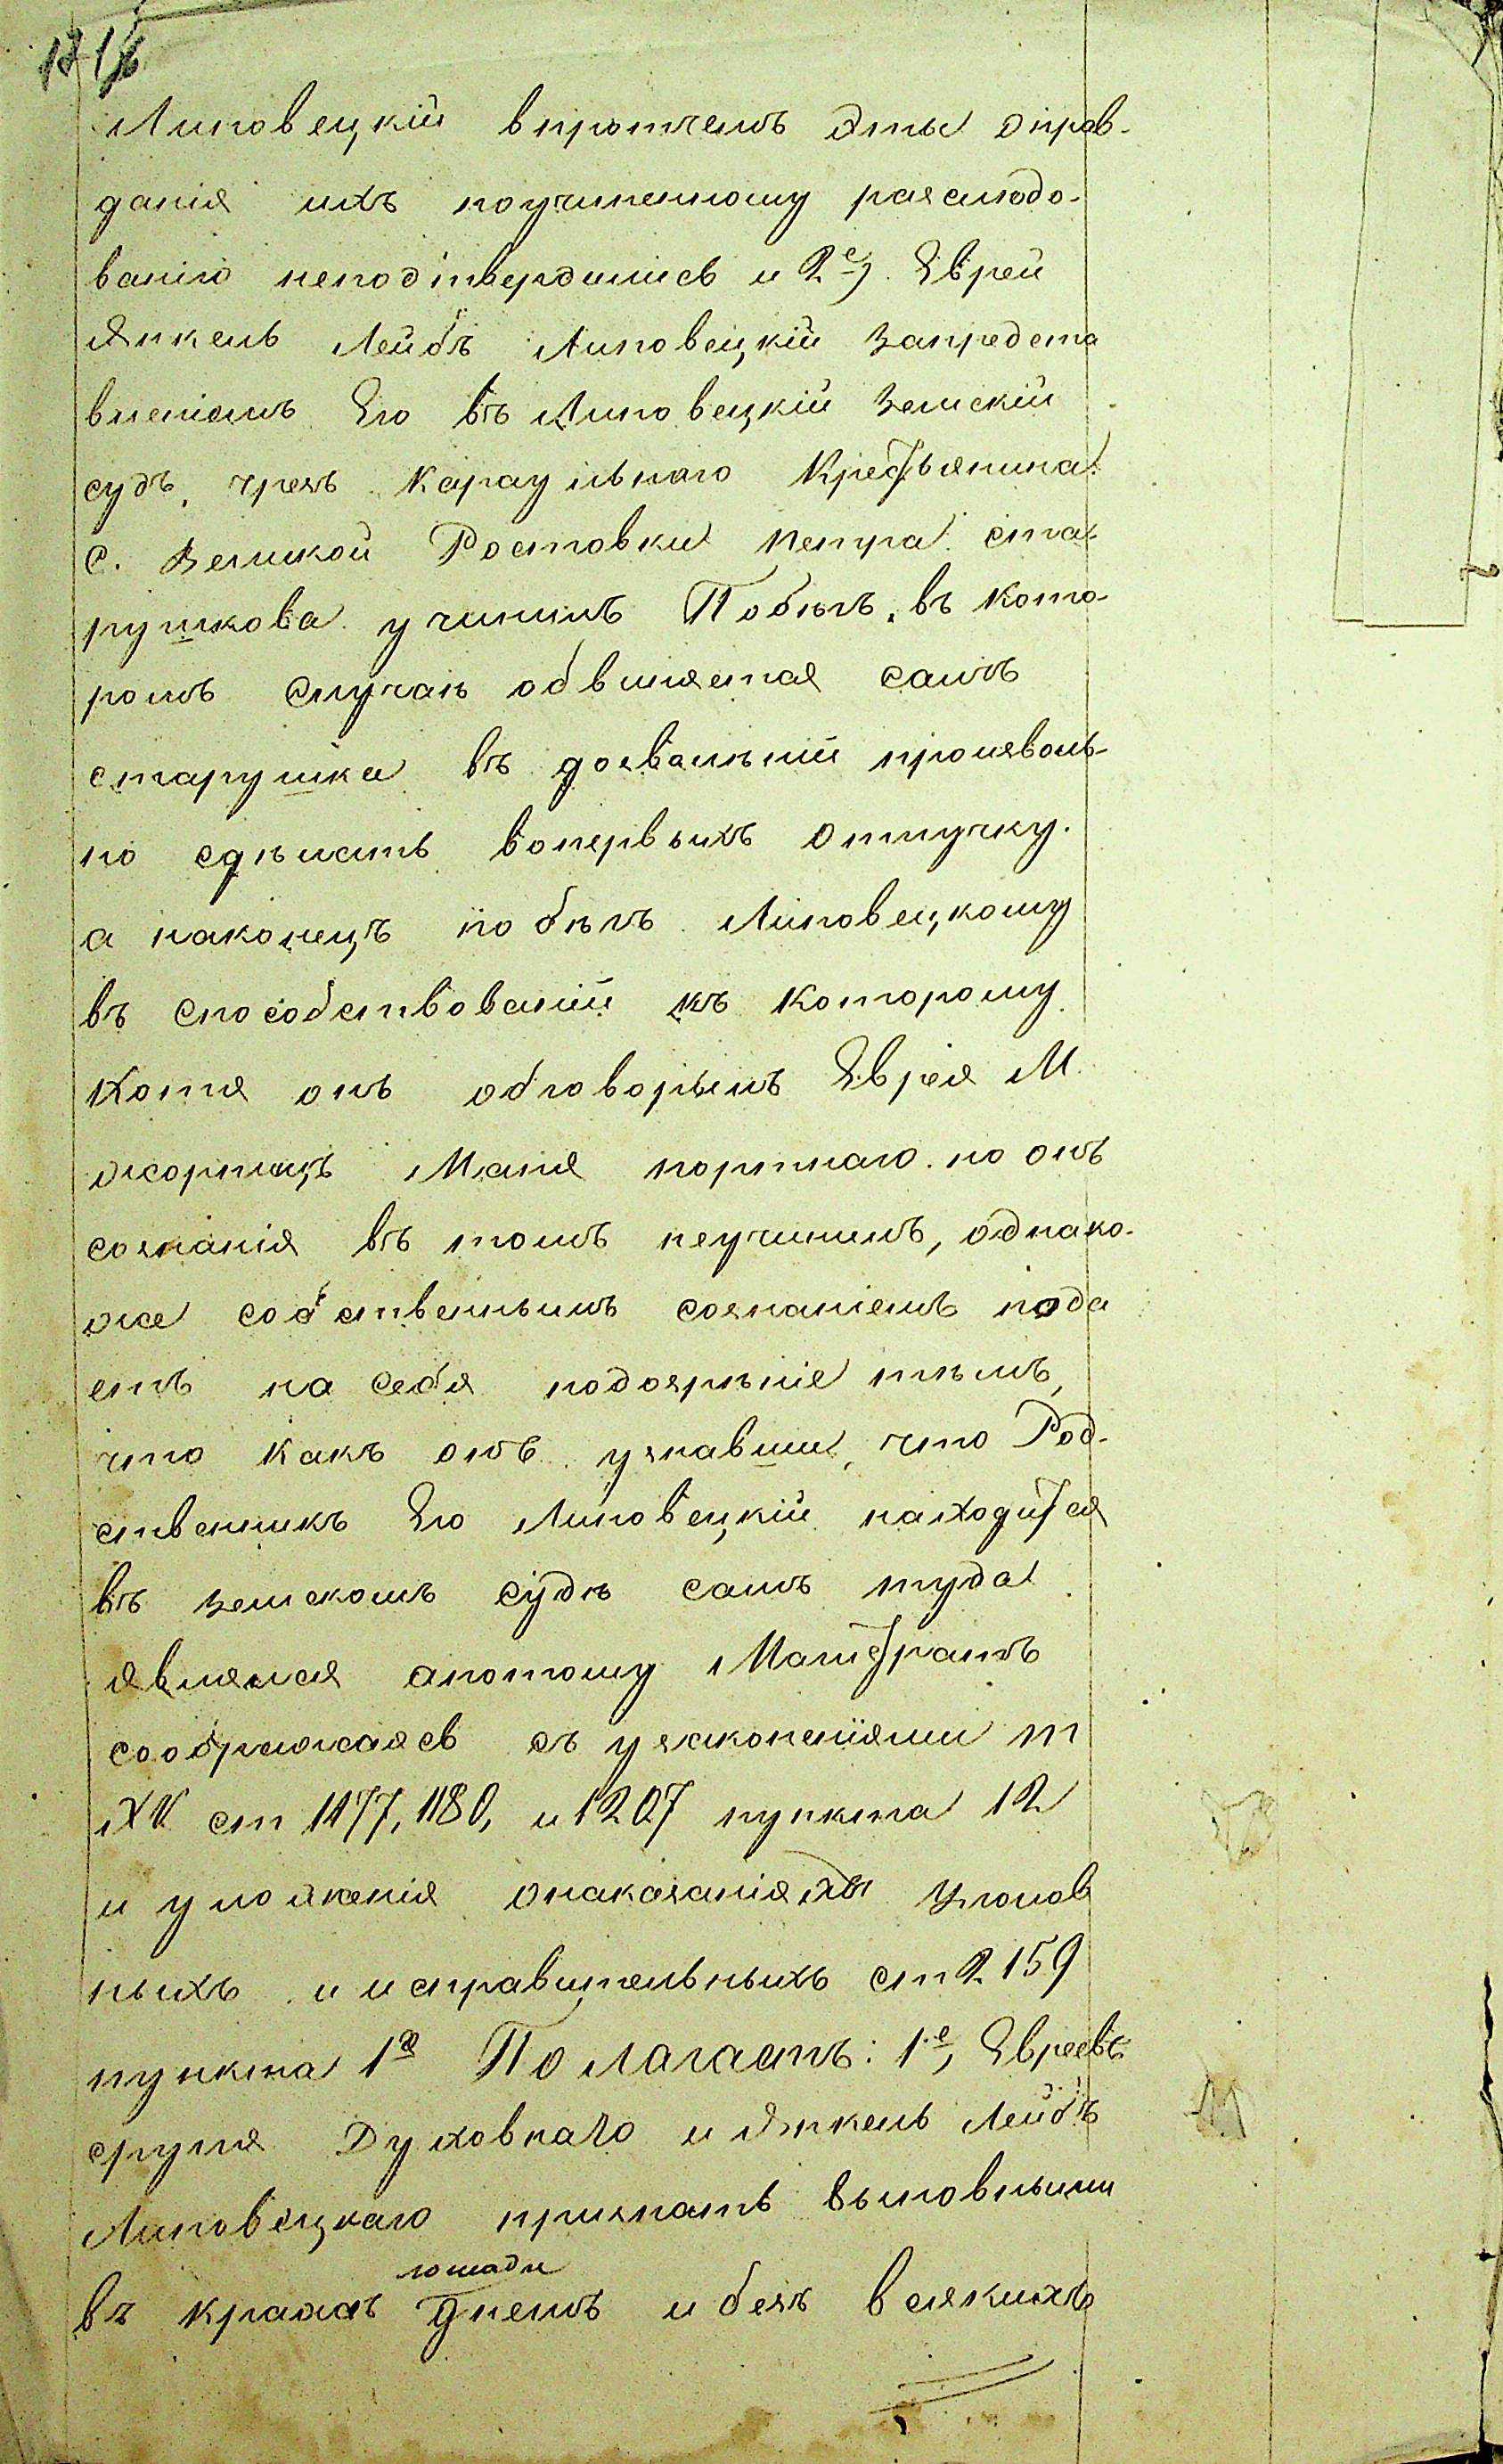 Липовецкiй впротчемъ эты оправ-
данiя ихъ поучиненному разслюдо-
ванiю неподтвердились и 2е) Еврей
Янкель Лейбъ Липовецкiй запредста
вленiемъ Его въ Липовецкiй Земскiй
судъ, чрезъ Караульного Крестьянина
с. Великой Ростовки Петра Ста-
рушкова учинилъ Побѣгъ, въ кото-
ромъ случаѣ обвиняется самъ
старушка въ дозваленiи произволь-
но сдѣлать вопервыхъ отлучку.
а наконецъ побѣгъ Липовецкому
въ способствованiи къ которому
хотя онъ обговорилъ Еврея М.
жорнищъ Маня портнаго. но онъ
сознанiя въ томъ неучинилъ, однако-
же собственнымъ сознанiемъ пода
етъ на себя подозрѣнiе тѣмъ,
что какъ онъ узнавши, что Род-
ственникъ Его Липовецкiй находится
въ земскомъ судѣ самъ туда
являлся апотому Магистратъ
соображаясь съ узаконенiями т
XV ст 1177, 1180, и 1207 пункта 12
и уложенiя онаказанiяхъ уголов
ныхъ и исправительныхъ ст 2159
пункта 1я Полагаетъ: 1е, Евреевъ
сруля Духовнаго и Янкель Лейбъ
Липовецкаго признать выновными
лошади
въ кражѣ днемъ и безъ всякихъ